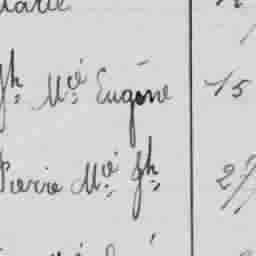 Jh Mie Eugène 15
Pierre Mie Jh 27